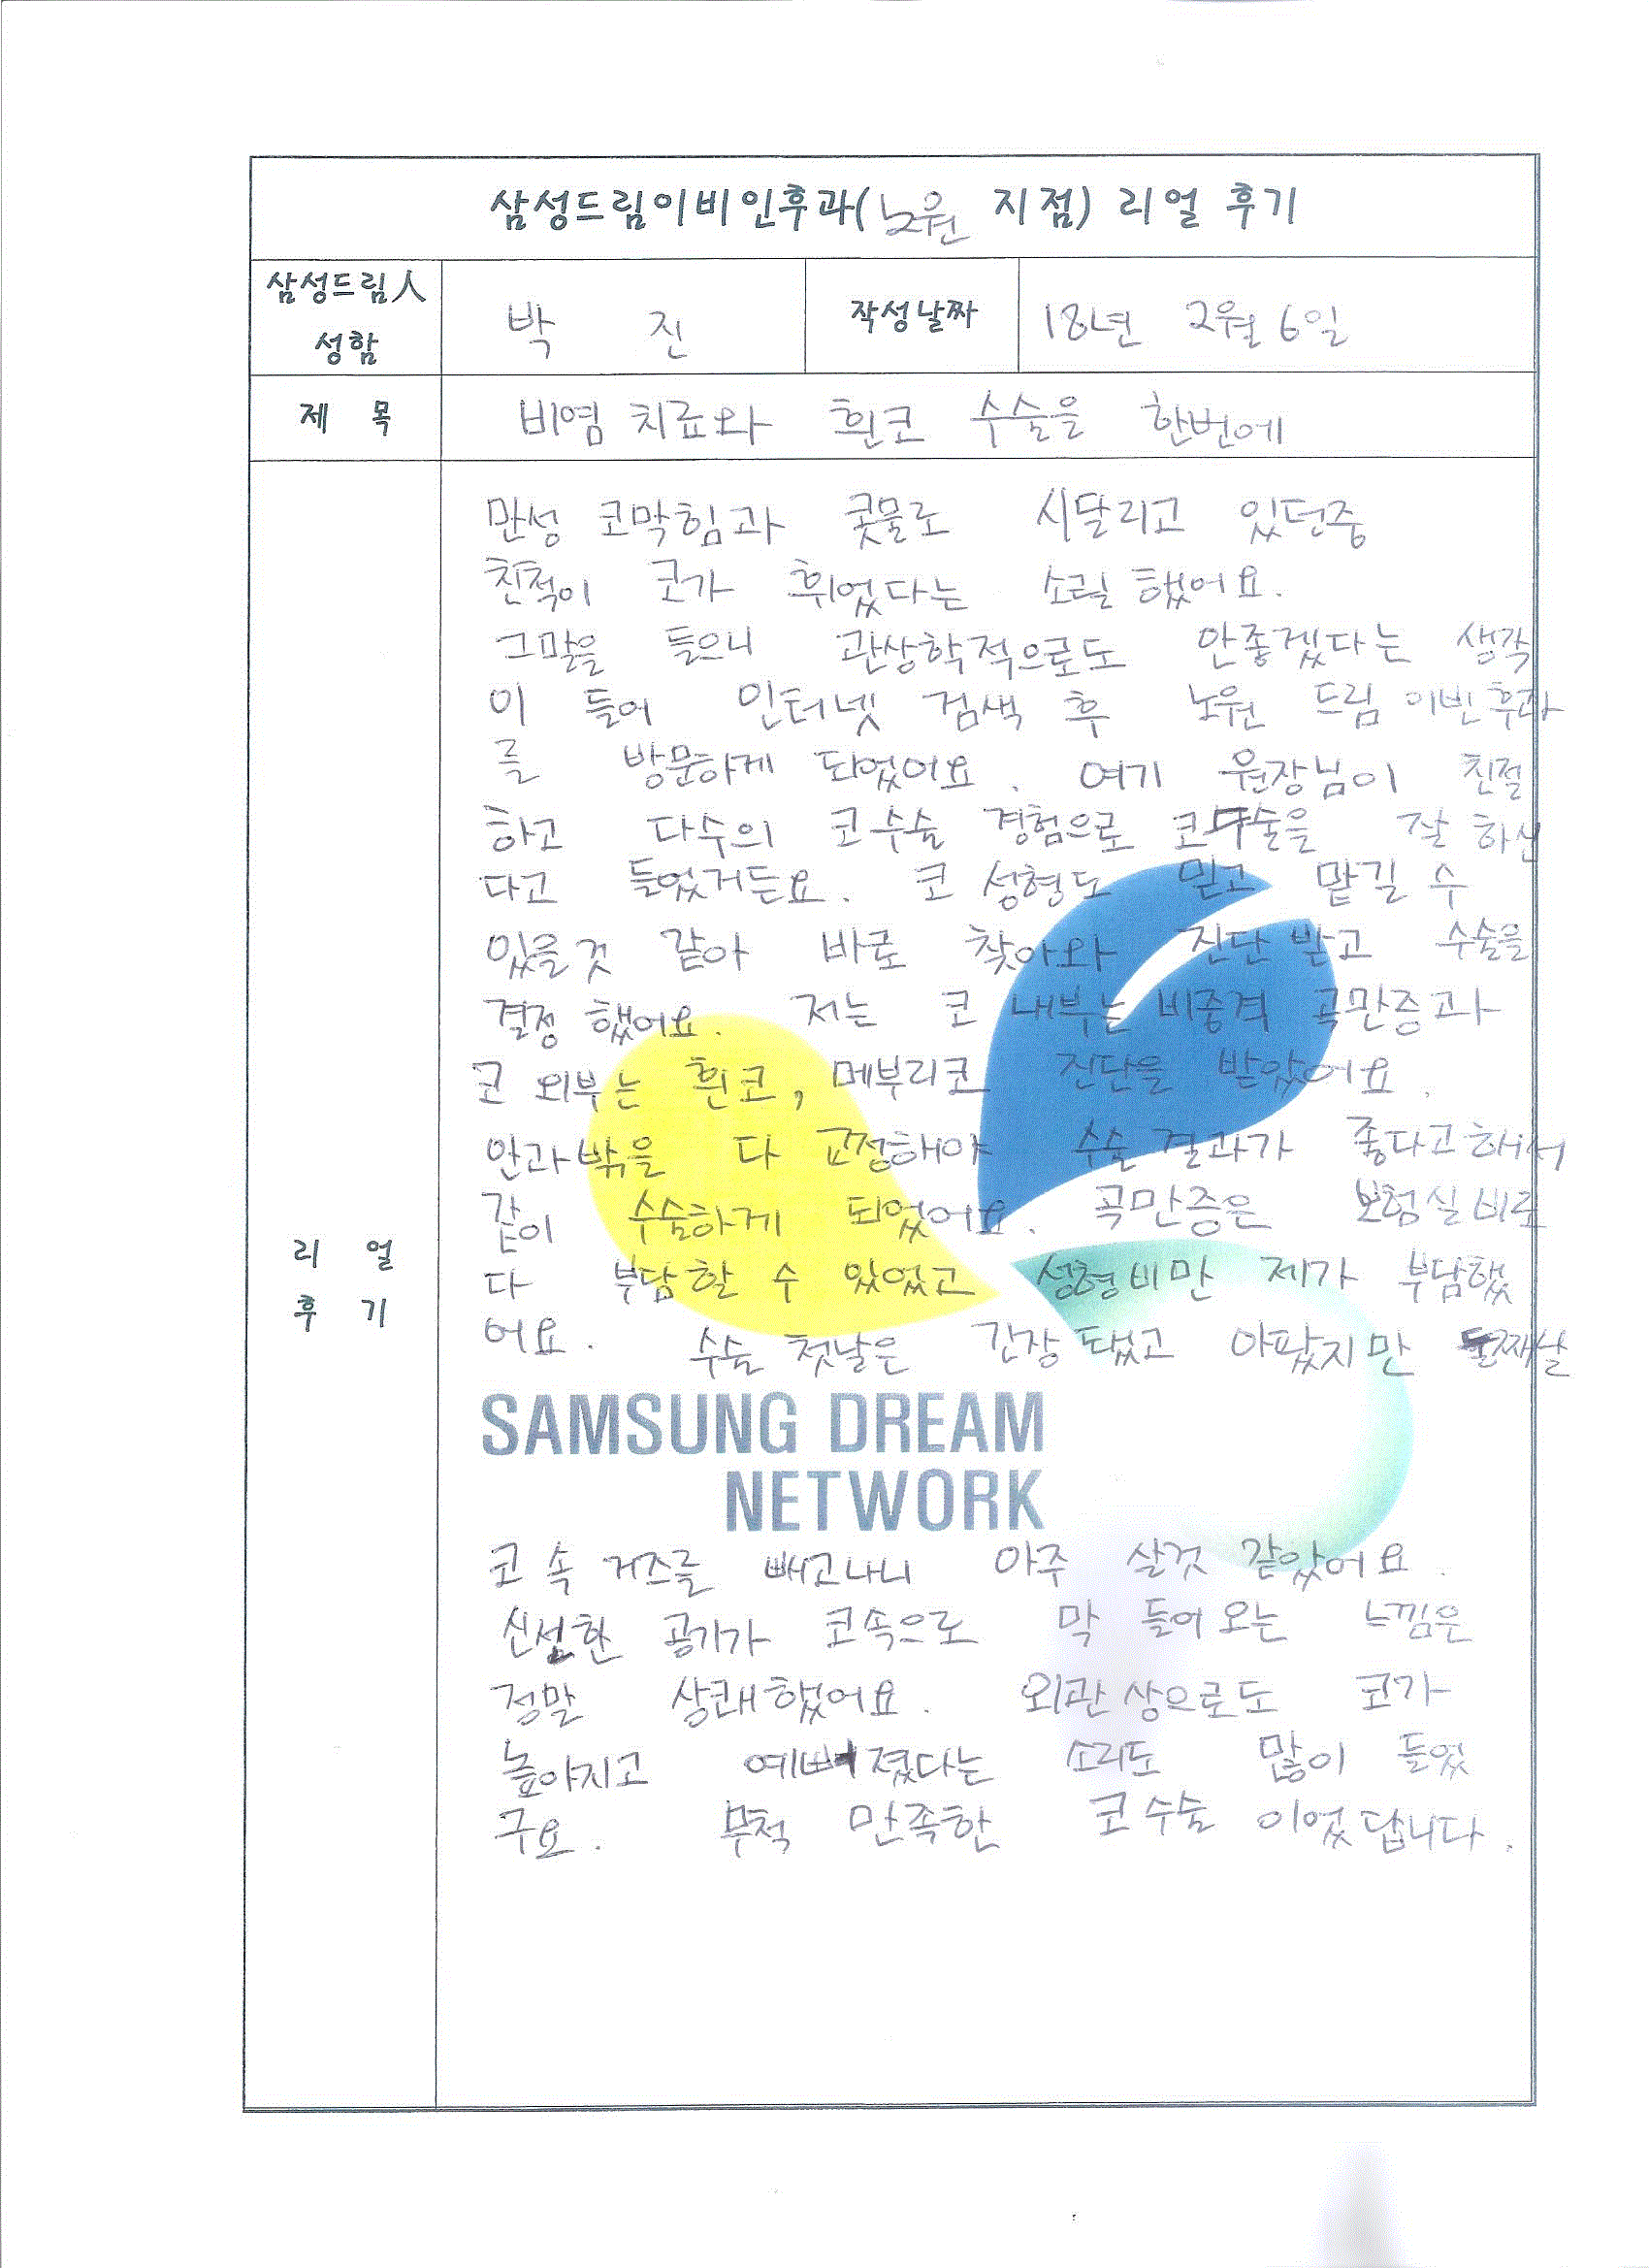 삼성드림이비인후과(노원 지점) 리얼 후기
삼성드림人 성함
박 진
작성날짜
18년 2월 6일
제 목
비염 치료와 휜코 수술을 한번에
리 얼 후 기
만성 코막힘과 콧물로 시달리고 있던중
친척이 코가 휘었다는 소릴 했어요.
그말을 들으니 관상학적으로도 안좋겠다는 생각
이 들어 인터넷 검색 후 노원 드림이빈후과
를 방문하게 되었어요. 여기 원장님이 친절
하고 다수의 코수술 경험으로 코수술을 잘 하신
다고 들었거든요. 코 성형도 믿고 맡길 수
있을것 같아 바로 찾아와 진단 받고 수술을
결정 했어요. 저는 코 내부는 비중격 곡만증과
코 외부는 흰코, 메부리코 진단을 받았어요.
안과밖을 다 교정해야 수술 결과가 좋다고해서
같이 수술하게 되었어요. 곡만증은 보험실비로
다 부담할 수 있었고 성형비만 제가 부담했
어요. 수술 첫날은 긴장됐고 아팠지만 둘째날
SAMSUNG DREAM
NETWORK
코 속 거즈를 빼고나니 아주 살것 같았어요.
신선한 공기가 코속으로 막 들어오는 느낌은
정말 상쾌했어요. 외관상으로도 코가
높아지고 예뻐졌다는 소리도 많이 들었
구요. 무척 만족한 코수술 이었답니다.